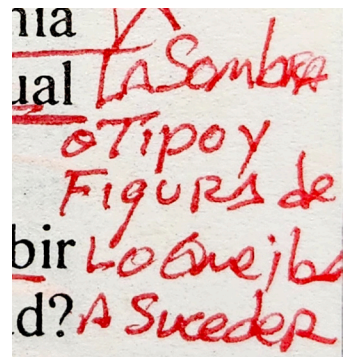 nia
ual LA Sombra
o Tipo y
FiguRA de
bir Lo Que iba
d? A SucedeR